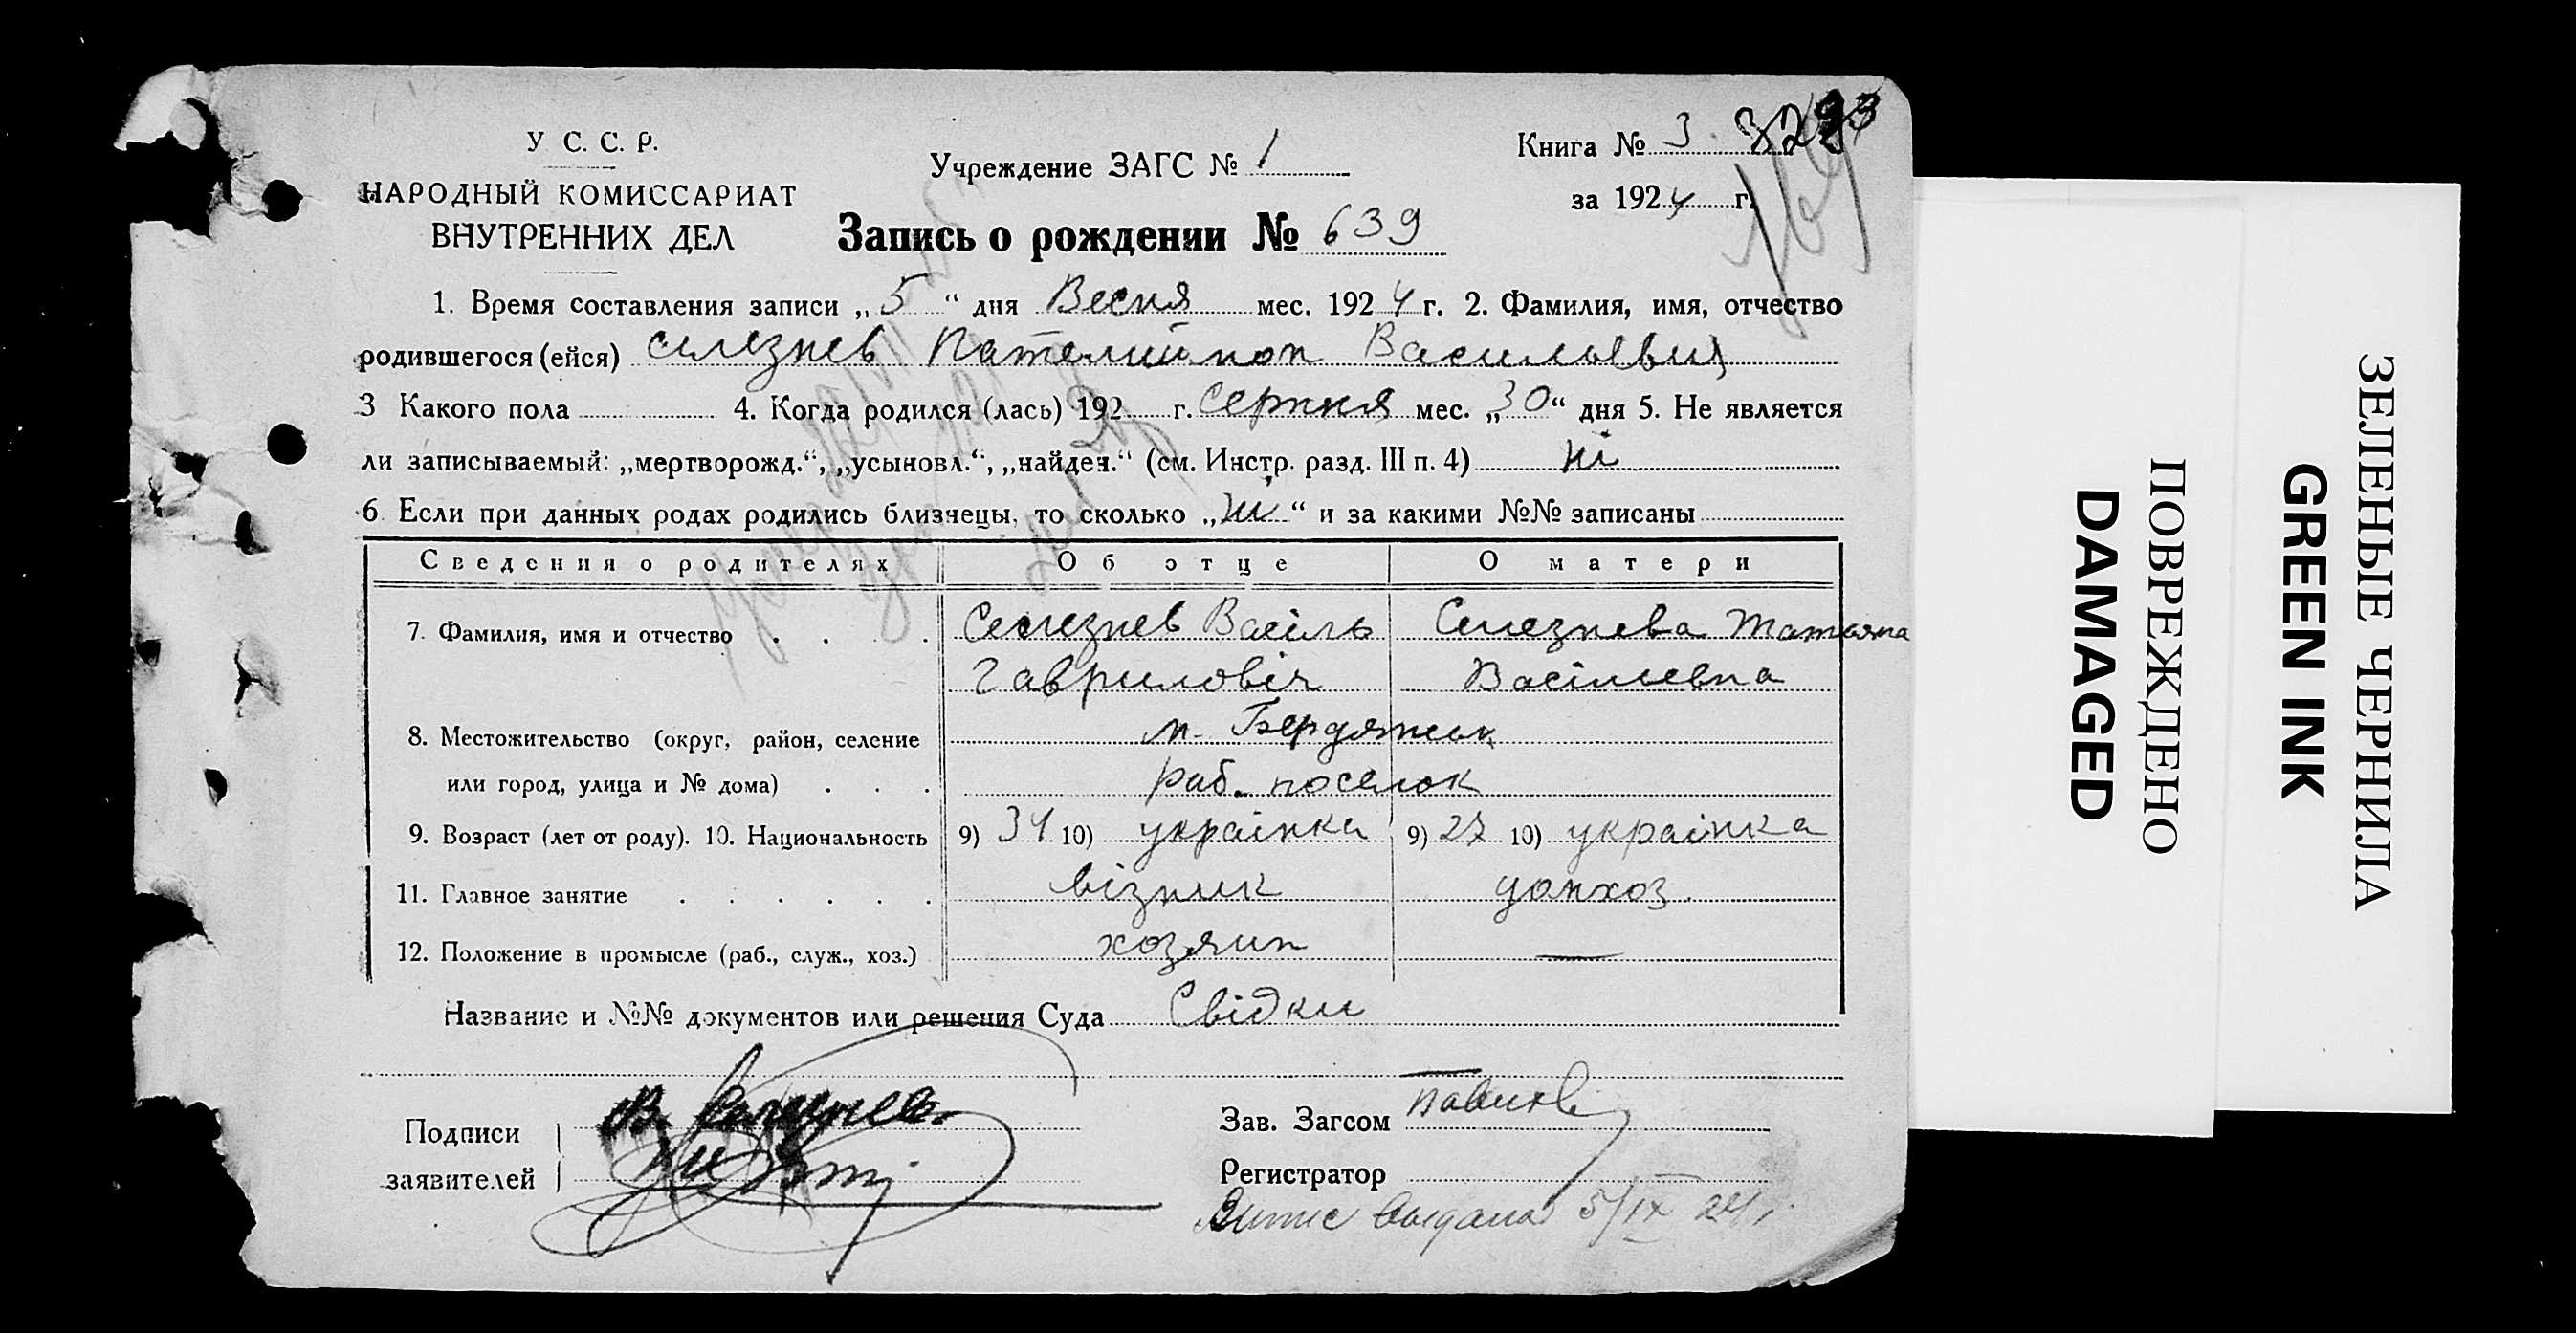 У С. С. Р.
НАРОДНЫЙ КОМИССАРИАТ
ВНУТРЕННИХ ДЕЛ
Учреждение ЗАГС № 1
Книга № 3
за 1924 г.
Запись о рождении № 639
1. Время составления записи „5“ дня Весня мес. 1924 г. 2. Фамилия, имя, отчество
родившегося (ейся) Селезнев Васильевич
3 Какого пола 4. Когда родился (лась) 192 г. Серпня мес. „30“ дня 5. Не является
ли записываемый: „мертворожд.“, „усыновл.“, „найден.“ (см. Инстр. разд. III п. 4) ні
6. Если при данных родах родились близнецы, то сколько „ні“ и за какими №№ записаны
Сведения о родителях Об отце О матери
7. Фамилия, имя и отчество Селезнев Васіль Селезнева Татьяна
Гавриловіч Васілиевна
8. Местожительство (округ, район, селение м. Бердянськ
или город, улица и № дома) раб. поселок
9. Возраст (лет от роду). 10. Национальность 9) 34 10) украінка 9) 27 10) украінка
11. Главное занятие візник домхоз.
12. Положение в промысле (раб., служ., хоз.) хозяин —
Название и №№ документов или решения Суда Свідки
Подписи
заявителей
В. Селезнев.
Зав. Загсом
Регистратор
Випис выдана 5/IX 24
ЗЕЛЕНЫЕ ЧЕРНИЛА
GREEN INK
ПОВРЕЖДЕНО
DAMAGED